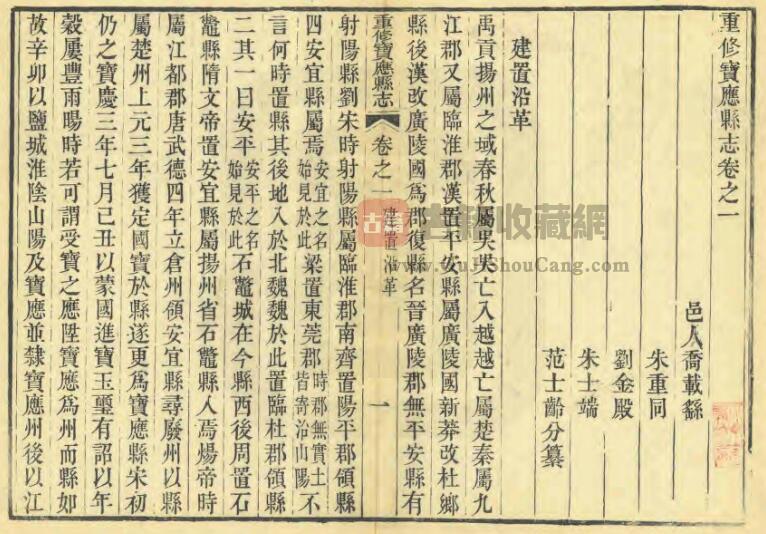 重修寶應縣志卷之一
邑人喬載繇
朱重同
劉金殿
朱士端
范士齡分纂
建置沿革
禹貢揚州之域春秋屬吳吳亡入越越亡屬楚秦屬九
江郡又屬臨淮郡漢置平安縣屬廣陵國新莽改杜鄉
縣後漢改廣陵國為郡復縣名晉廣陵郡無平安縣有
重修寶應縣志 卷之一 建置沿革 一
射陽縣劉宋時射陽縣屬臨淮郡南齊置陽平郡領縣
四安宜縣屬焉安宜之名始見於此梁置東莞郡時郡無實土皆寄治山陽不
言何時置縣其後地入於北魏魏於此置臨杜郡領縣
二其一曰安平安平之名始見於此石鼈城在今縣西後周置石
鼈縣隋文帝置安宜縣屬揚州省石鼈縣入焉煬帝時
屬江都郡唐武德四年立倉州領安宜縣尋廢州以縣
屬楚州上元三年獲定國寶於縣遂更為寶應縣宋初
仍之寶慶三年七月己丑以蒙國進寶玉璽有詔以年
穀屢豐雨暘時若可謂受寶之應陞寶應為州而縣如
故辛卯以鹽城淮陰山陽及寶應並隸寶應州後以江
古籍
古籍收藏網
www.GuJiShouCang.com